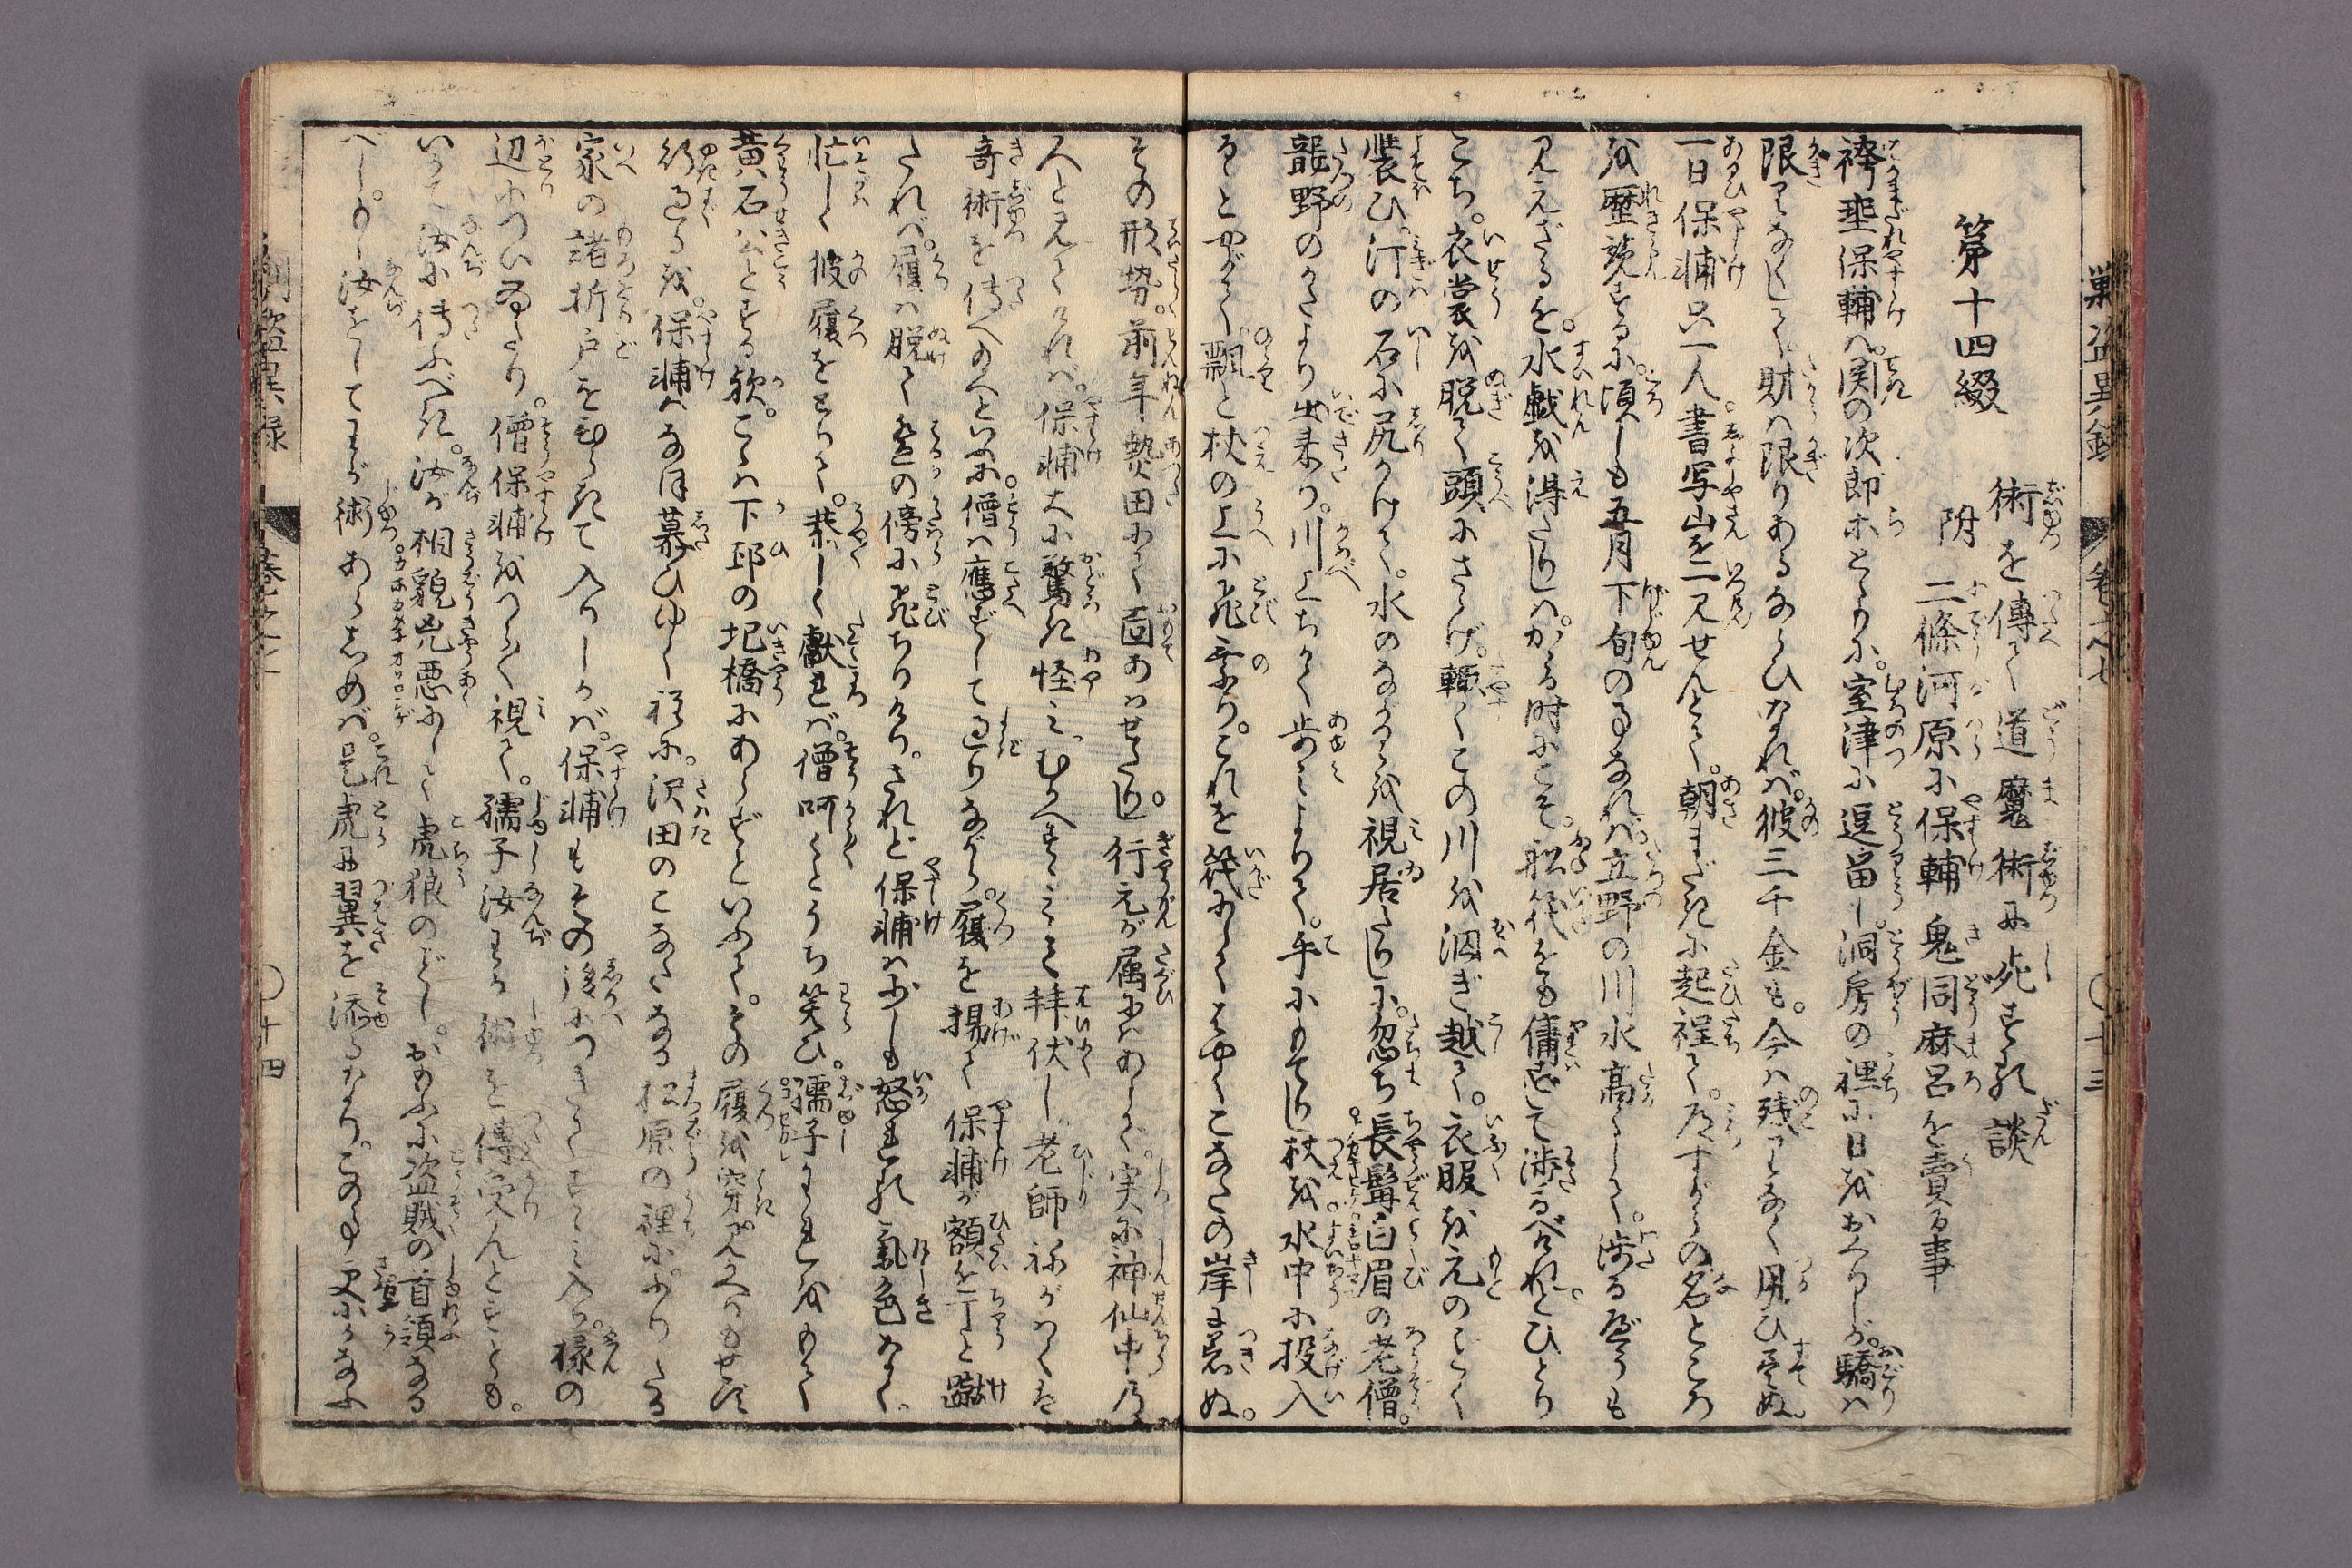 第十四綴
術を傳て道魔術に死する談
附 二條河原に保輔鬼同麻呂を賣る事
袴垂保輔ハ関の次郎ホとゝもに。室津に逗留し。洞房の裡に日をおくりしが。驕ハ
限りなくして。財ハ限りあるならひなれバ。彼三千金も。今ハ残りなく用ひ
一日保輔只一人。書写山を一見せんとて。朝まだきに起程て。道すがらの名ところ
を歴覧するに。頃しも五月下旬の事なれバ。立野の川水高くして。渉るべうも
見えざるを。水戯を得たれバ。かゝる時にこそ。船筏をも傭ずして渉るべけれと。ひとり
こち。衣裳を脱て頭にさゝげ。輙くこの川を泅ぎ越て。衣服を元のごとく
裝ひ。汀の石に尻かけて。水のながるゝを視居たりしに。忽ち長髯白眉の老僧。
龍野のかたより出来り。川上ちかく歩みよりて。手にもてる杖を水中に投入
るゝとやがて。飄と杖の上に飛乗り。これを筏にしてはやくこなたの岸に着ぬ。
その形勢。前年熱田にて面あハせたりし。行元が属にハあらで。実に神仙中乃
人と見てけれバ。保輔大に驚き怪み。むかへすゝみて拝伏し。老師ねがハくハ
奇術を傳へ給へといふに。僧ハ應ずして過りながら。履を揚て保輔が額を丁と蹴
たれバ。履ハ脱て遙の傍に飛ちりけり。されど保輔ハ少しも怒れる氣色なく。
忙しく彼履をとりて。恭しく獻れバ。僧呵々とうち笑ひ。孺子われをもて
黄石公とする歟。こゝハ下邳の圯橋にあらずといふて。その履を穿。見かへりもせず
行過るを。保輔ハなほ慕ひゆく程に。沢田のこなたなる松原の裡に。ふりたる
家の諸折戸をひらきて入りしかバ。保輔もその後につきてすゝみ入り。椽の
辺につい居たり。僧保輔をつく〲視て。孺子汝わが術を傳受んとすとも。
いかで汝に傳ふべき。汝が相貌兇悪にして虎狼のごとし。おもふに盗賊の首領なる
べし。もし汝をしてわが術あらしめバ。是虎に翼を添るなり。この事更にかなふ